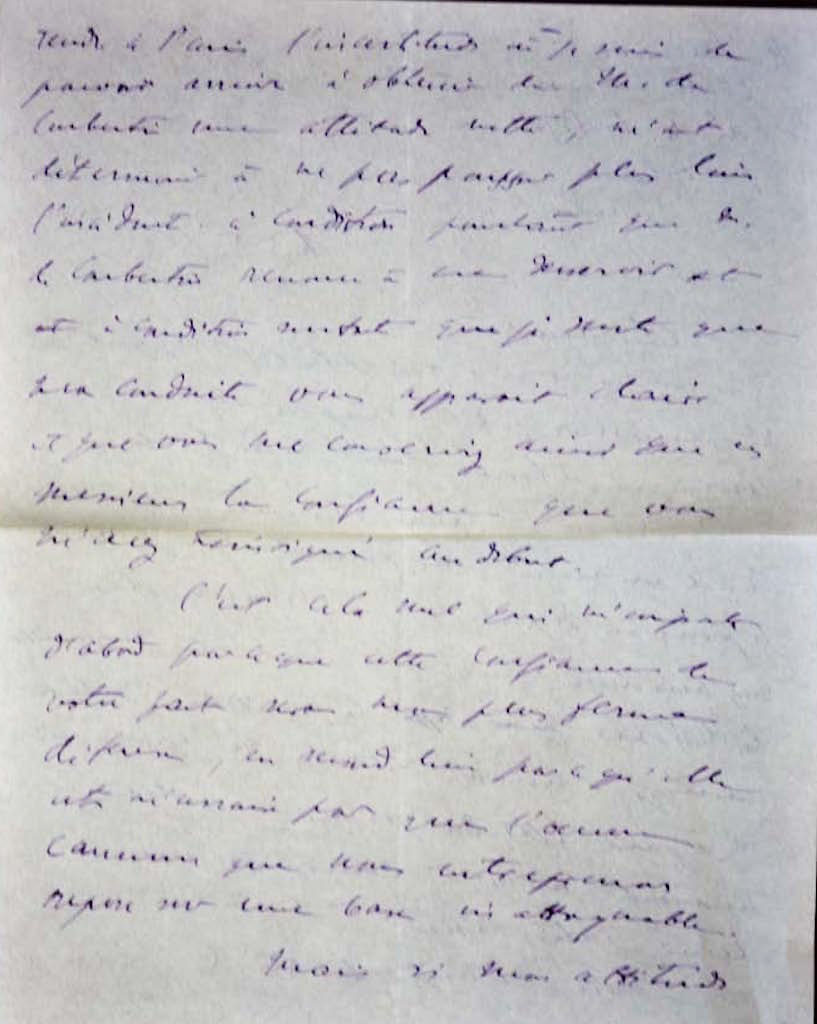 rends à Paris l'incertitude où je suis de
pouvoir arriver à obtenir de Mr. de
Corberton une attitude nette, m'ont
déterminé à ne pas pousser plus loin
l'incident à condition pourtant que M.
de renonce à et
et à condition surtout que je sente que
ma conduite vous apparait claire
et que vous me conserviez ainsi que ces
messieurs la confiance que vous
m'avez témoignée au début.
C'est cela seul qui m'importe
d'abord parce que cette confiance de
votre part sera ma plus ferme
défense, en second lieu parce qu'elle
est nécessaire pour que l'oeuvre
commune que nous entreprenons
repose sur une base inattaquable.
Mais si mon attitude